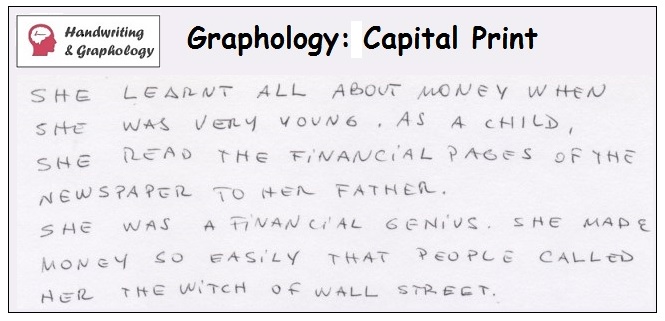 Handwriting
& Graphology
Graphology: Capital Print
SHE LEARNT ALL ABOUT MONEY WHEN
SHE WAS VERY YOUNG. AS A CHILD,
SHE READ THE FiNANCiAL PAGES OF THE
NEWSPAPER TO HER FATHER.
SHE WAS A FiNANCiAL GENiUS. SHE MADE
MONEY SO EASiLY THAT PEOPLE CALLED
HER THE WiTCH OF WALL STREET.